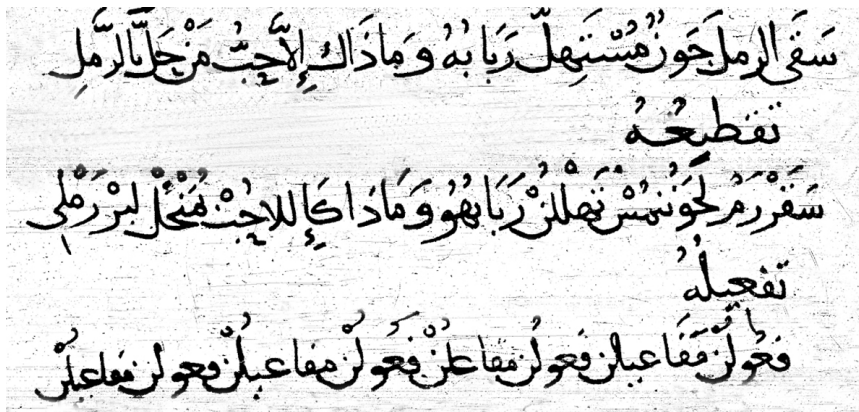 سَقَى الرمل جَوْنٌ مُسْتَهِلّ رَبَابُهُ وَمَا ذَاكَ إِلاَّ حُبُّ مَنْ حَلَّ بِالرَّمْلِ
تقطيعُهُ
سَقَرْرَمْ لَجَوْنُنمُسْ تَهِلْلُنْ رَبَابُهُو وَمَا ذَا كَإِللا حُبْ بُمَنْحَلْ لبِرْرَمْلِي
تفعيلُهُ
فَعُولُنْ مَفَاعيلن فَعولُن مفاعلُنْ فَعُولُنْ مفاعيلُنْ فعولن مفاعيلُنْ